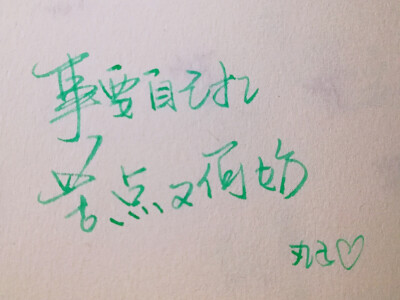 事要自己扛
苦点又何妨
丸己♡